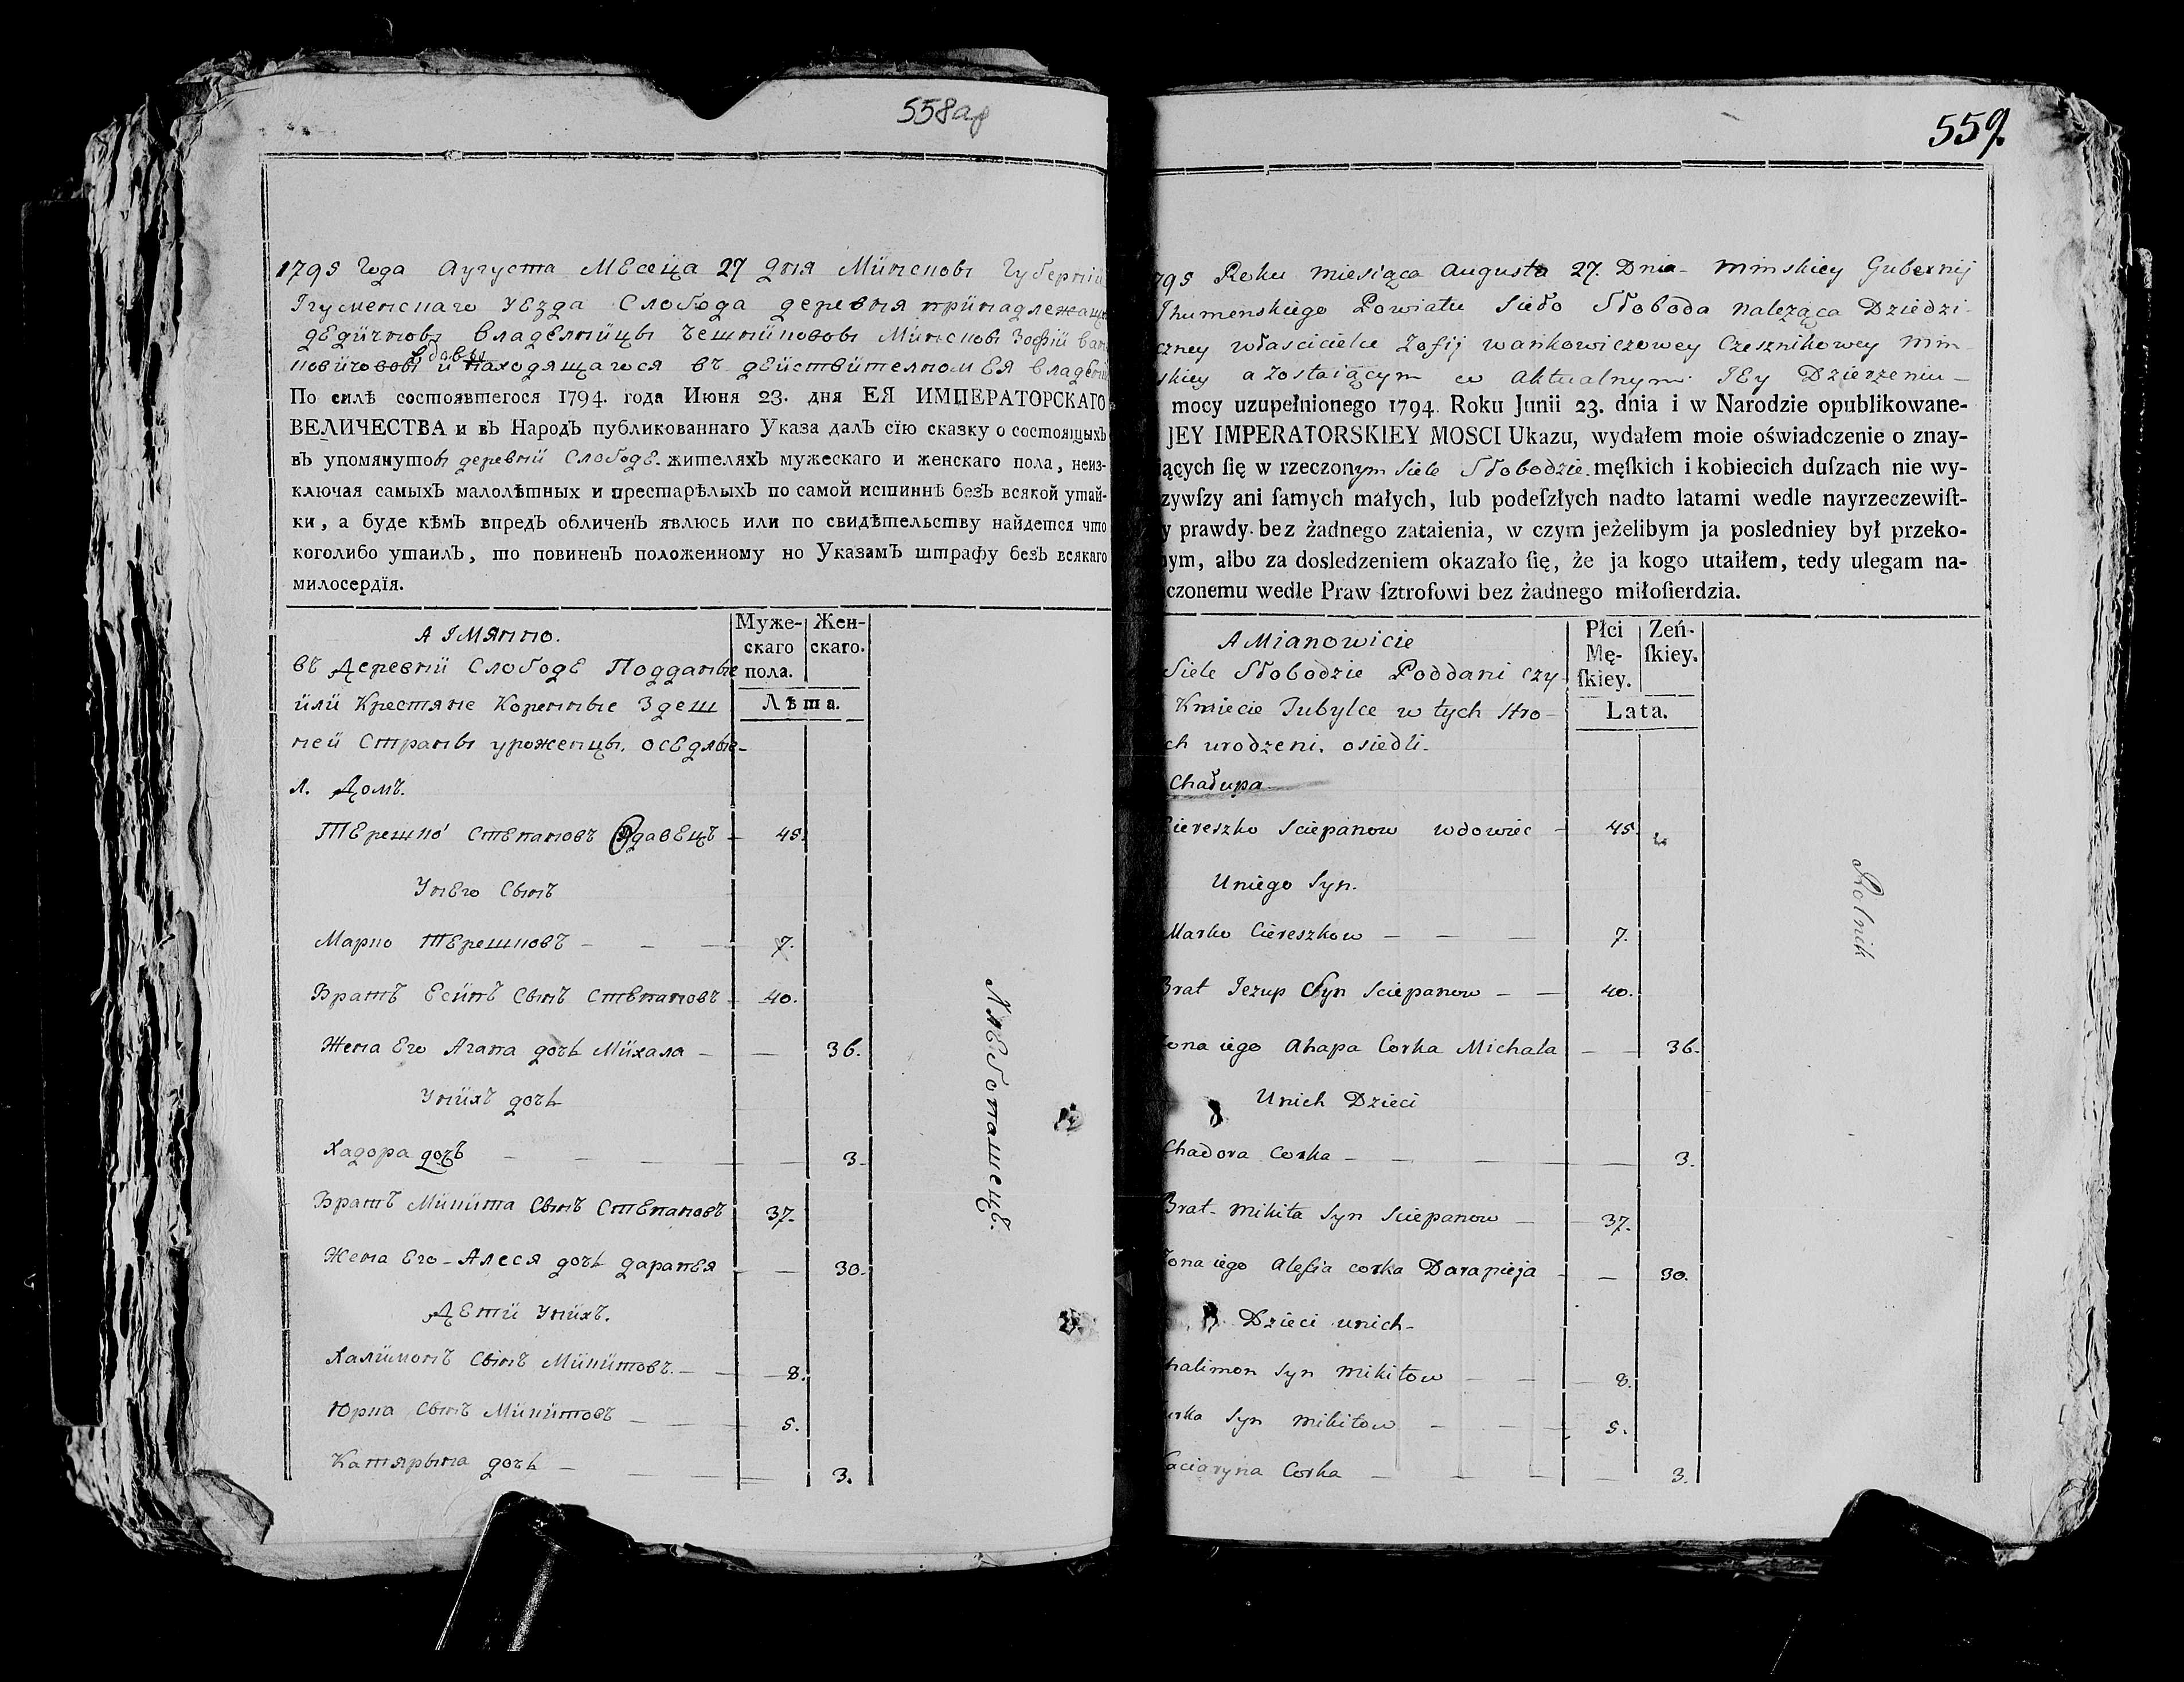 558об
1795 Года Августа МЕсеца 27 дня Минской Губернии
Ігуменскаго УЕзда Слобода деревня принадлежащ
дЕдичной владЕлницы Чешниковой Минской Зофии Ван
ковичовой вдавы и находящагося въ дЕйствителном ЕЯ владЕни
По силѣ состоявшегося 1794. года Июня 23. дня ЕЯ ИМПЕРАТОРСКАГО
ВЕЛИЧЕСТВА и въ Народъ публикованнаго Указа далъ сїю сказку о состоящыхъ
въ упомянутой деревни СлободЕ. жителяхъ мужескаго и женскаго пола, неиз-
ключая самыхъ малолѣтныхъ и престарѣлыхъ по самой истиннѣ безъ всякой утай-
ки, а буде кѣмъ впредъ обличенъ явлюсь или по свидѣтельству найдется что
коголибо утаилъ, то повиненъ положенному по Указамъ штрафу безъ всякаго
милосердїя.
А Імянно.
Муже-
скаго
пола.
Жен-
скаго.
Лѣта.
въ Деревни СлободЕ Подданые
или Крестяне Коренные Здеш
ней Страны уроженцы. осЕдлые
1. Домъ.
ТЕрешко СтЕпановъ ВдавЕцъ - 45.
У нЕго Сынъ
Марко ТЕрешковъ - - - 7.
Братъ Есипъ Сынъ СтЕпановъ - 40.
Жена Его Агапа дочь Михала - - 36.
У нихъ дочь
Хадора дочь - - - - - 3.
Братъ Микита Сынъ СтЕпановъ 37.
Жена Его - Алеся дочь ДарапЕя - - 30.
ДЕти У нихъ.
Халимонъ Сынъ Микитовъ. - - 8.
Юрка Сынъ Микитовъ - - - 5.
Катярына дочь - - - - 3.
ХлЕбопашецъ.
559.
795 Roku miesiąca Augusta 27. Dnia - Minskiey Gubernij
Ihumenskiego Powiatu Sioło Słoboda należąca Dziedzi-
czney własciciełce Zofij Wańkowiczowey Czesznikowey Min-
skiey a zostaiącym w Aktualnym IEy Dzierzeniu -
mocy uzupełnionego 1794. Roku Junii 23. dnia i w Narodzie opublikowane-
JEY IMPERATORSKIEY MOSCI Ukazu, wydałem moie oświadczenie o znay-
iących ſię w rzeczonym Siele Słobodzie. męſkich i kobiecich duſzach nie wy-
zywſzy ani ſamych małych, lub podeſzłych nadto latami wedle nayrzeczewiſt-
y prawdy bez żadnego zataienia, w czym jeżelibym ja posledniey był przeko-
ym, albo za dosledzeniem okazało ſię, że ja kogo utaiłem, tedy ulegam na-
czonemu wedle Praw ſztrofowi bez żadnego miłoſierdzia.
A Mianowicie
Płci
Mę-
ſkiey.
Zeń-
ſkiey.
Lata.
Siele Słobodzie Poddani czy-
Kmiecie Jubylce w tych stro-
ch urodzeni. osiedli.
Chałupa
Ciereszko Sciepanow wdowiec - 45.
U niego Syn.
Marko Ciereszkow - - - 7.
Brat Jezup Syn Sciepanow - - 40.
Zona iego Ahapa Corka Michała - - 36.
U nich Dzieci
Chadora Corka - - - - - 3.
Brat - Mikita Syn Sciepanow - - 37.
Zona iego Aleſia corka Darapieja - - 30.
Dzieci u nich -
halimon Syn Mikitow - - - 8.
urka Syn Mikitow - - - 5.
Kaciaryna Corka - - - - 3.
Rolnik